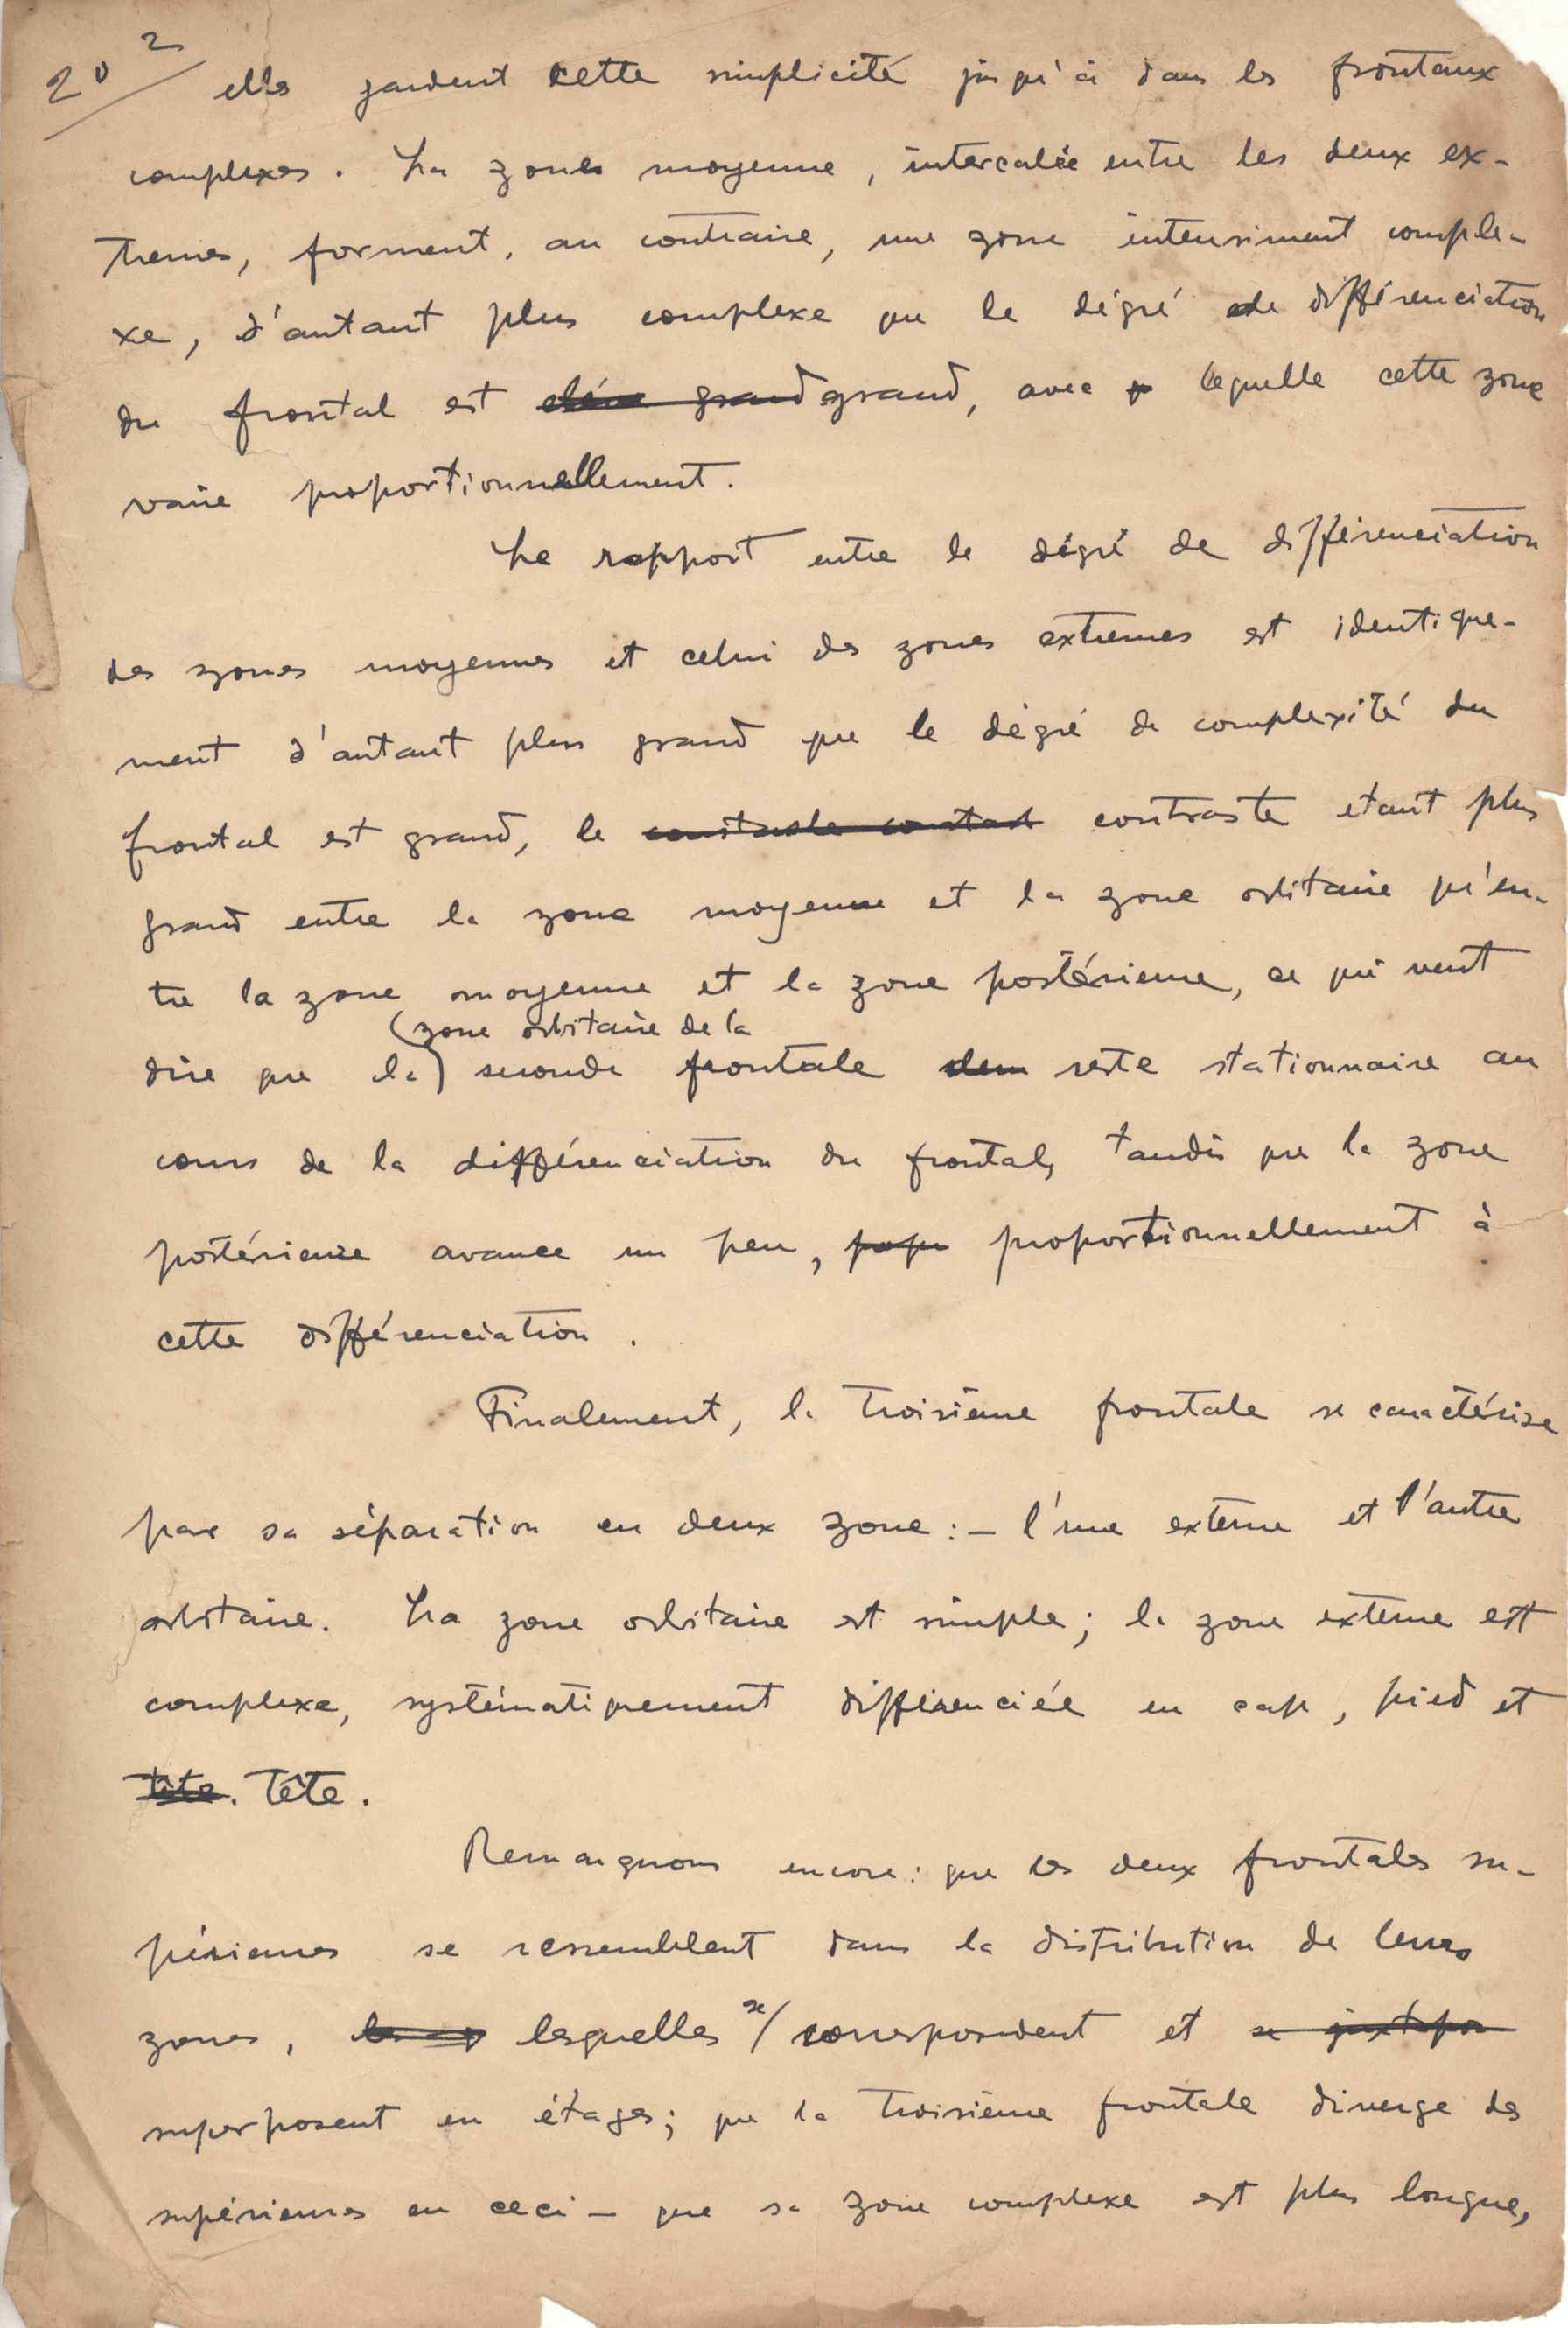 20 2
elles gardent cette simplicité jusqu'à dans les frontaux
complexes. La zones moyenne, intercalée entre les deux ex-
tremes, forment, au contraire, une zone intensiment comple-
xe, d'autant plus complexe que le dégré de différenciation
du frontal est grand grand, avec lequelle cette zone
varie proportionnellement.
Le rapport entre le dégré de différenciation
des zones moyennes et celui des zones extremes est identique-
ment d'autant plus grand que le dégré de complexité du
frontal est grand, le contraste etant plus
grand entre la zone moyenne et la zone orbitaire qu'en-
tre la zone moyenne et la zone postérieure, ce qui veut
(zone orbitaire de la
dire que la) seconde frontale reste stationnaire au
cours de la différenciation du frontal, tandis que la zone
postérieure avance un peu, proportionnellement à
cette différenciation.
Finalement, la troisième frontale se caractérise
par sa séparation en deux zone:- l'une externe et l'autre
orbitaire. La zone orbitaire est simple; la zone externe est
complexe, systématiquement différenciée en cap, pied et
tête. Tête.
Remarquons encore: que les deux frontales su-
périeures se ressemblent dans la distribution de leurs
zones, lesquelles se/ correspondent et se juxtapo
superposent en étages; que la troisième frontale diverge des
supérieures en ceci - que sa zone complexe est plus longue,